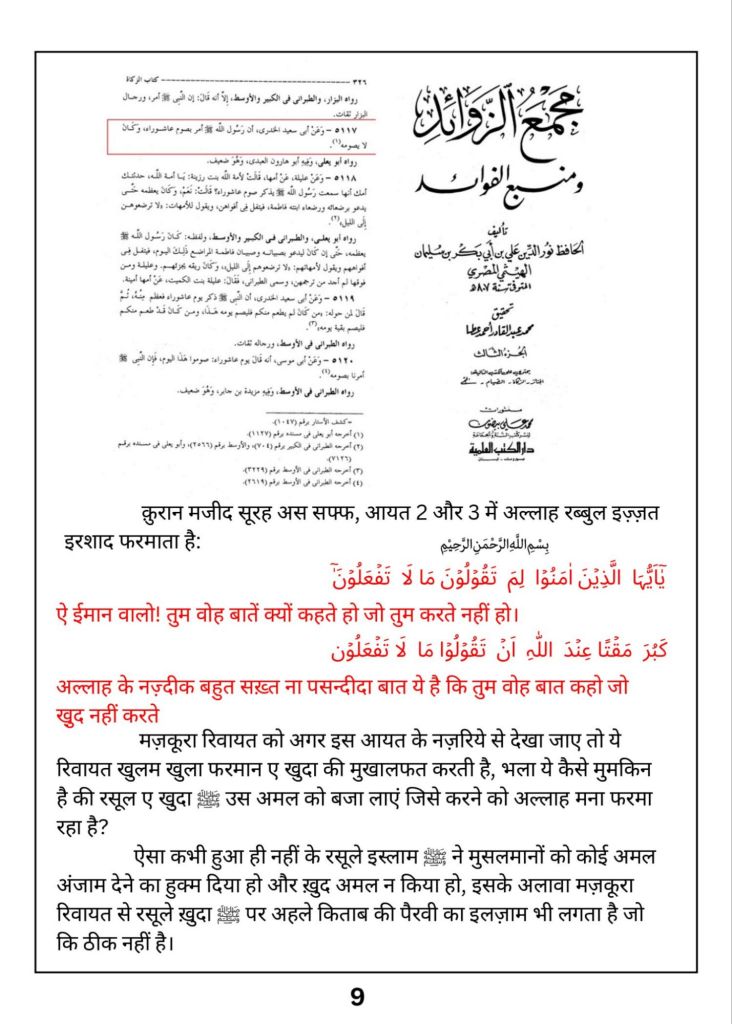 ٣٢٦ ــــــــــــــــــــــــــــــــــــــــــــــــــــ كتاب الزكاة
رواه البزار، والطبرانى فى الكبير والأوسط، إلا أنه قال: إن النبى ﷺ أمر، ورجال
البزار ثقات.
٥١١٧ - وَعَنْ أبى سعيد الخدرى، أن رَسُول اللَّه ﷺ أمر بصوم عاشوراء، وَكَانَ
لا يصومه(١).
رواه أبو يعلى، وَفِيهِ أبو هارون العبدى، وَهُوَ ضعيف.
٥١١٨ - وَعَنْ عليلة، عَنْ أمها، قَالَتْ: قُلْتُ لأمة اللَّه بنت رزينة: يَا أمة اللَّه، حدثتك
أمك أنها سمعت رَسُول اللَّه ﷺ يذكر صوم عاشوراء؟ قَالَتْ: نَعَمْ، وَكَانَ يعظمه حَتَّى
يدعو برضعائه ورضعاء ابنته فاطمة، فيتفل فِى أفواههن، ويقول للأمهات: «لا ترضعوهن
إِلَى الليل»(٢).
رواه أبو يعلى، والطبرانى فى الكبير والأوسط، ولفظه: كَانَ رَسُول اللَّه ﷺ
يعظمه، حَتَّى إن كَانَ ليدعو بصبيانه وصبيان فاطمة المراضع ذَلِكَ اليوم، فيتفل فِى
أفواههم ويقول لأمهاتهم: «لا ترضعوهم إِلَى الليل»، وَكَانَ ريقه يجزئهم. وعليلة ومن
فوقها لم أجد من ترجمهن، وسمى الطبرانى، فَقَالَ: عليلة بنت الكميت، عَنْ أمها أمينة.
٥١١٩ - وَعَنْ أبى سعيد الخدرى، أن النَّبِى ﷺ ذكر يوم عاشوراء فعظم مِنْهُ، ثُمَّ
قَالَ لمن حوله: «من كَانَ لم يطعم منكم فليصم يومه هَذَا، ومن كَانَ قَدْ طعم منكم
فليصم بقية يومه»(٣).
رواه الطبرانى فى الأوسط، ورجاله ثقات.
٥١٢٠ - وَعَنْ أبى موسى، أنه قَالَ يوم عاشوراء: صوموا هَذَا اليوم، فَإِن النَّبِى ﷺ
أمرنا بصومه(٤).
رواه الطبرانى فى الأوسط، وَفِيهِ مزيدة بن جابر، وَهُوَ ضعيف.
=كشف الأستار برقم (١٠٤٧).
(١) أخرجه أبو يعلى فى مسنده برقم (١١٢٧).
(٢) أخرجه الطبرانى فى الكبير برقم (٧٠٤)، والأوسط برقم (٢٥٦٦)، وأبو يعلى فى مسنده برقم
(٧١٢٦).
(٣) أخرجه الطبرانى فى الأوسط برقم (٣٢٢٩).
(٤) أخرجه الطبرانى فى الأوسط برقم (٢٦١٩).
مجمع الزوائد
ومنبع الفوائد
تأليف
الحافظ نور الدين علي بن أبي بكر بن سليمان
الهيثمي المصري
المتوفى سنة ٨٠٧ هـ
تحقيق
محمد عبد القادر أحمد عطا
الجزء الثالث
الجنائز - الزكاة - الصيام - الحج
منشورات
محمد علي بيضون
دار الكتب العلمية
بيروت - لبنان
क़ुरान मजीद सूरह अस सफ्फ, आयत 2 और 3 में अल्लाह रब्बुल इज़्ज़त
इरशाद फरमाता है: بِسْمِ اللَّهِ الرَّحْمَنِ الرَّحِيْمِ
يٰۤاَيُّهَا الَّذِيْنَ اٰمَنُوْا لِمَ تَقُوْلُوْنَ مَا لَا تَفْعَلُوْنَ
ऐ ईमान वालो! तुम वोह बातें क्यों कहते हो जो तुम करते नहीं हो।
كَبُرَ مَقْتًا عِنْدَ اللّٰهِ اَنْ تَقُوْلُوْا مَا لَا تَفْعَلُوْن
अल्लाह के नज़्दीक बहुत सख़्त ना पसन्दीदा बात ये है कि तुम वोह बात कहो जो
खुद नहीं करते
मज़कूरा रिवायत को अगर इस आयत के नज़रिये से देखा जाए तो ये
रिवायत खुलम खुला फरमान ए खुदा की मुखालफत करती है, भला ये कैसे मुमकिन
है की रसूल ए खुदा ﷺ उस अमल को बजा लाएं जिसे करने को अल्लाह मना फरमा
रहा है?
ऐसा कभी हुआ ही नहीं के रसूले इस्लाम ﷺ ने मुसलमानों को कोई अमल
अंजाम देने का हुक्म दिया हो और ख़ुद अमल न किया हो, इसके अलावा मज़कूरा
रिवायत से रसूले ख़ुदा ﷺ पर अहले किताब की पैरवी का इलज़ाम भी लगता है जो
कि ठीक नहीं है।
9